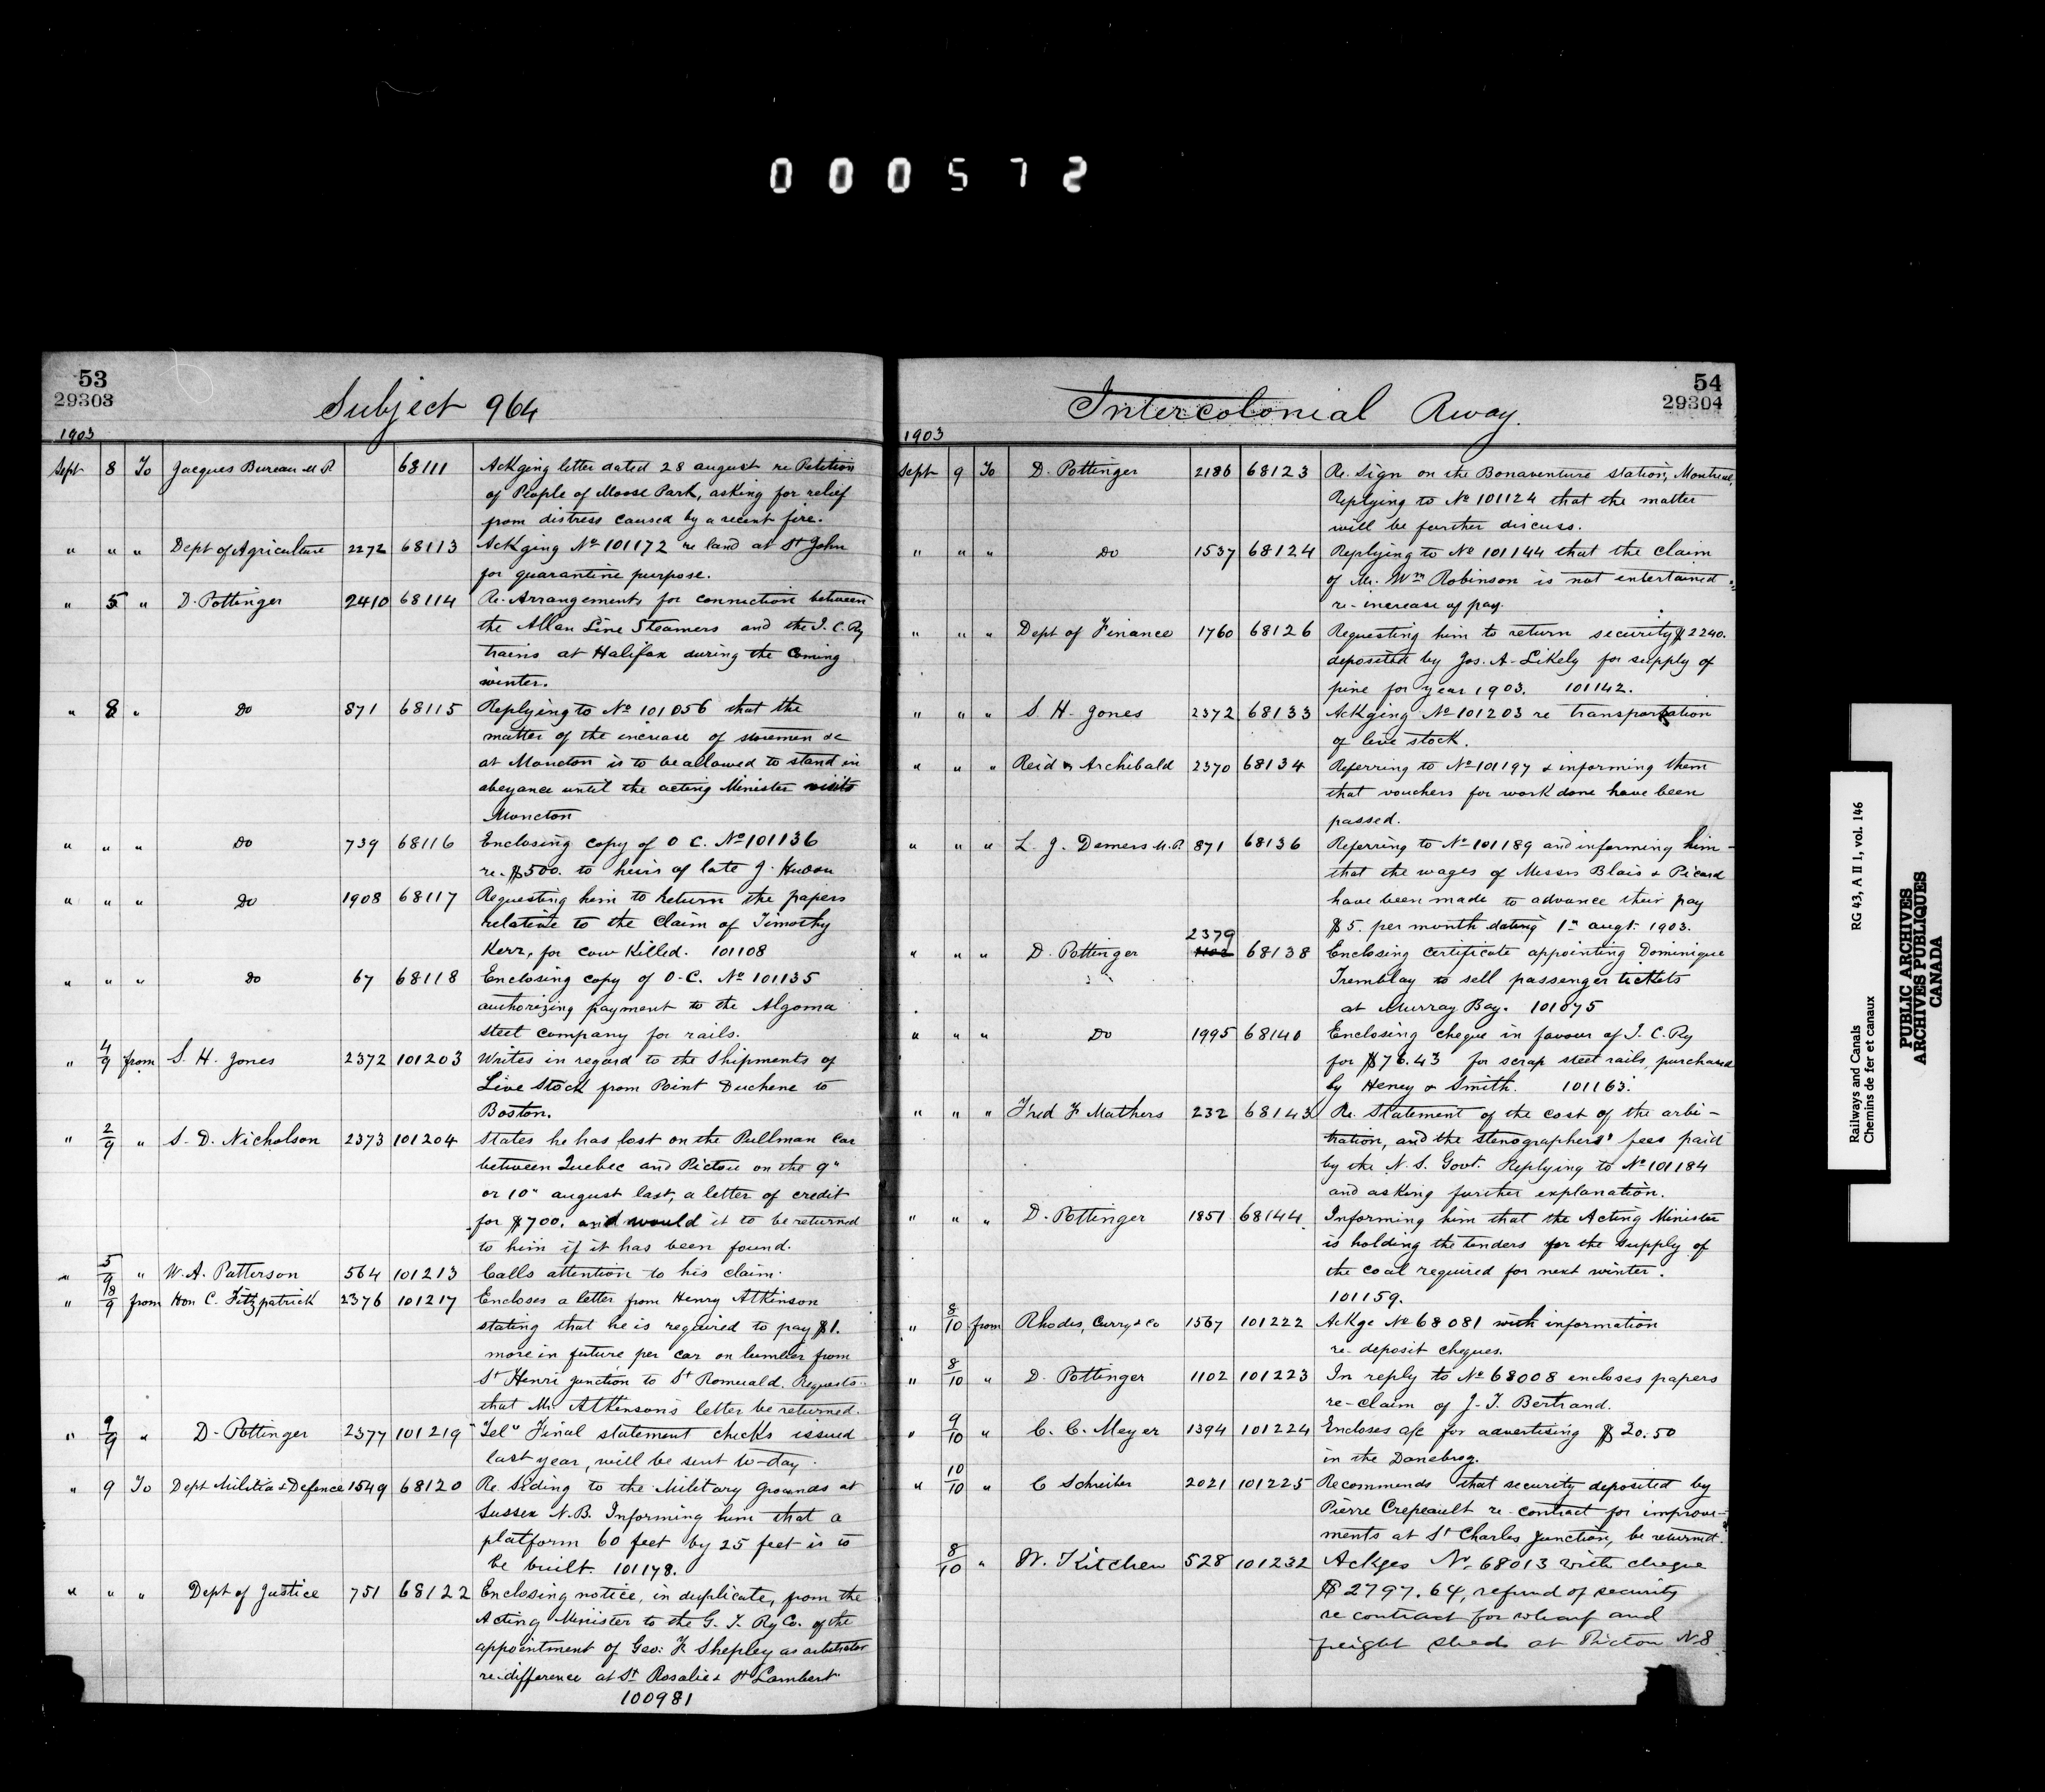 000572
53
29303
Subject 964
1903
Sept 8 To Jacques Bureau M.P. 68111 Ackging letter dated 28 august re Petition
of People of Moose Park, asking for relief
from distress caused by a recent fire.
" " " Dept of Agriculture 2272 68113 Ackging No 101172 re land at St John
for quarantine purpose.
" 5 " D. Pottinger 2410 68114 Re- Arrangements for connection between
the Allan Line Steamers and the I. C. Ry
trains at Halifax during the Coming
winter.
" 8 " Do 871 68115 Replying to No 101056 that the
matter of the increase of storemen &c
at Moncton is to be allowed to stand in
abeyance until the acting Minister visits
Moncton
" " " Do 739 68116 Enclosing copy of O C. No 101136
re- $500. to heirs of late J.
" " " Do 1908 68117 Requesting him to return the papers
relative to the Claim of Timothy
Kerr, for cow Killed. 101108
" " " Do 67 68118 Enclosing copy of O-C. No 101135
authorizing payment to the Algoma
steel company for rails.
" 4/9 from S. H. Jones 2372 101203 Writes in regard to the shipments of
Live Stock from Point Duchene to
Boston.
" 2/9 " S. D. Nicholson 2373 101204 States he has lost on the Pullman Car
between Quebec and Pictou on the 9"
or 10" august last, a letter of credit
for $700. and would it to be returned
to him if it has been found.
" 5/9 " W. A. Patterson 564 101213 Calls attention to his claim.
" 8/9 from Hon C. Fitzpatrick 2376 101217 Encloses a letter from Henry Atkinson
stating that he is required to pay $1.
more in future per car on lumber from
St Henri junction to St Romuald. Requests
that Mr. Atkinson's letter be returned.
" 9/9 " D- Pottinger 2377 101219 "Tel" Final statement checks issued
last year, will be sent to-day.
" 9 To Dept Militia & Defence 1549 68120 Re. Siding to the Military grounds at
Sussex N.B. Informing him that a
platform 60 feet by 25 feet is to
be built. 101178.
" " " Dept of Justice 751 68122 Enclosing notice, in duplicate, from the
Acting Minister to the G. T. Ry Co. of the
appointment of Geo: F. Shepley as arbitrator
re-difference at St Rosalie & St Lambert
100981
54
29304
Intercolonial Rway.
1903
Sept 9 To D. Pottinger 2186 68123 Re. Sign on the Bonaventure station, Montreal,
Replying to No 101124 that the matter
will be further discuss.
" " " Do 1537 68124 Replying to No 101144 that the claim
of Mr. Wm Robinson is not entertained
re- increase of pay.
" " " Dept of Finance 1760 68126 Requesting him to return security $2240.
deposited by Jos. A- Likely for supply of
pine for year 1903. 101142.
" " " S. H- Jones 2372 68133 Ackging No 101203 re transportation
of live stock.
" " " Reid & Archibald 2370 68134 Referring to No 101197 & informing them
that vouchers for work done have been
passed.
" " " L. J. Demers M.P. 871 68136 Referring to No 101189 and informing him-
that the wages of Messrs Blais & Picard
have been made to advance their pay
$5. per month dating 1st augt. 1903.
2379
" " " D. Pottinger 68138 Enclosing Certificate appointing Dominique
Tremblay to sell passenger tickets
at Murray Bay. 101075
" " " Do 1995 68140 Enclosing cheque in favour of I. C. Ry
for $76.43 for scrap steel rails, purchased
by Heney & Smith. 101163.
" " " Fred F Mathers 232 68143 Re. Statement of the cost of the arbi-
tration, and the stenographers' fees paid
by the N. S. Govt. Replying to No 101184
and asking further explanation.
" " " D. Pottinger 1851 68144 Informing him that the Acting Minister
is holding the tenders for the supply of
the coal required for next winter.
101159.
" 8/10 from Rhodes, Curry & Co 1567 101222 Ackge No 68081 with information
re- deposit cheques.
" 8/10 " D. Pottinger 1102 101223 In reply to No 68008 encloses papers
re-claim of J- T. Bertrand.
" 9/10 " C. C. Meyer 1394 101224 Encloses a/c for advertising $20.50
in the Danebrog.
" 10/10 " C Schreiber 2021 101225 Recommends that security deposited by
Pierre Crepeault re- contract for improve-
ments at St Charles Junction, be returned.
8/10 " W. Kitchen 528 101232 Ackges No. 68013 with cheque
$2797.64, refund of security
re contract for wharf and
freight sheds at Picton NS
Railways and Canals RG 43, A II 1, vol. 146
Chemins de fer et canaux
PUBLIC ARCHIVES
ARCHIVES PUBLIQUES
CANADA